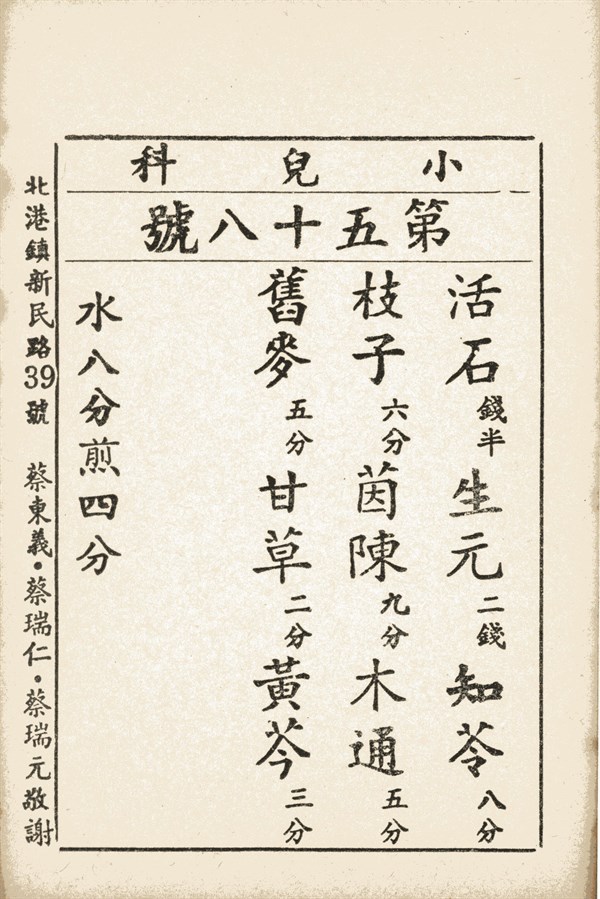 小兒科
第五十八號
活石錢半 生元二錢 知苓八分
枝子六分 茵陳九分 木通五分
舊麥五分 甘草二分 黃芩三分
水八分煎四分
北港鎮新民路39號 蔡東義•蔡瑞仁•蔡瑞元敬謝